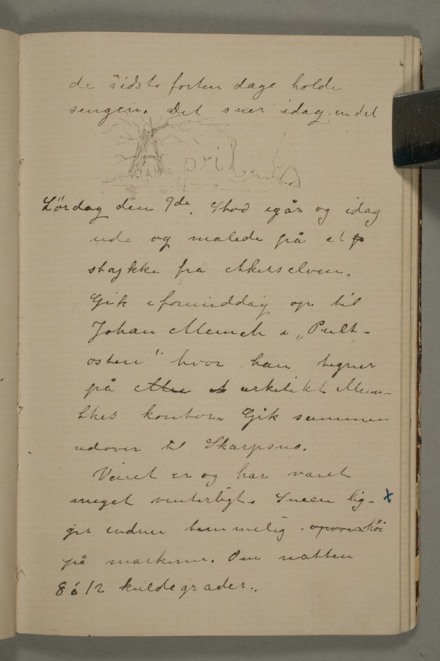 de sidste fjorten dage holde
sengen. Det sner idag endel
April
Lördag den 9de. Stod igår og idag
ude og malede på et
stykke fra Akerselven.
Gik iformiddag op til
Johan Munch i "Pult-
osten" hvor han tegner
på arkitekt Mun-
thes kontor. Gik sammen
udover til Skarpsno.
Veiret er og har været
meget vinterligt. Sneen lig-
ger endnu temmelig høi
på markerne. Om natten
8 à 12 kuldegrader.